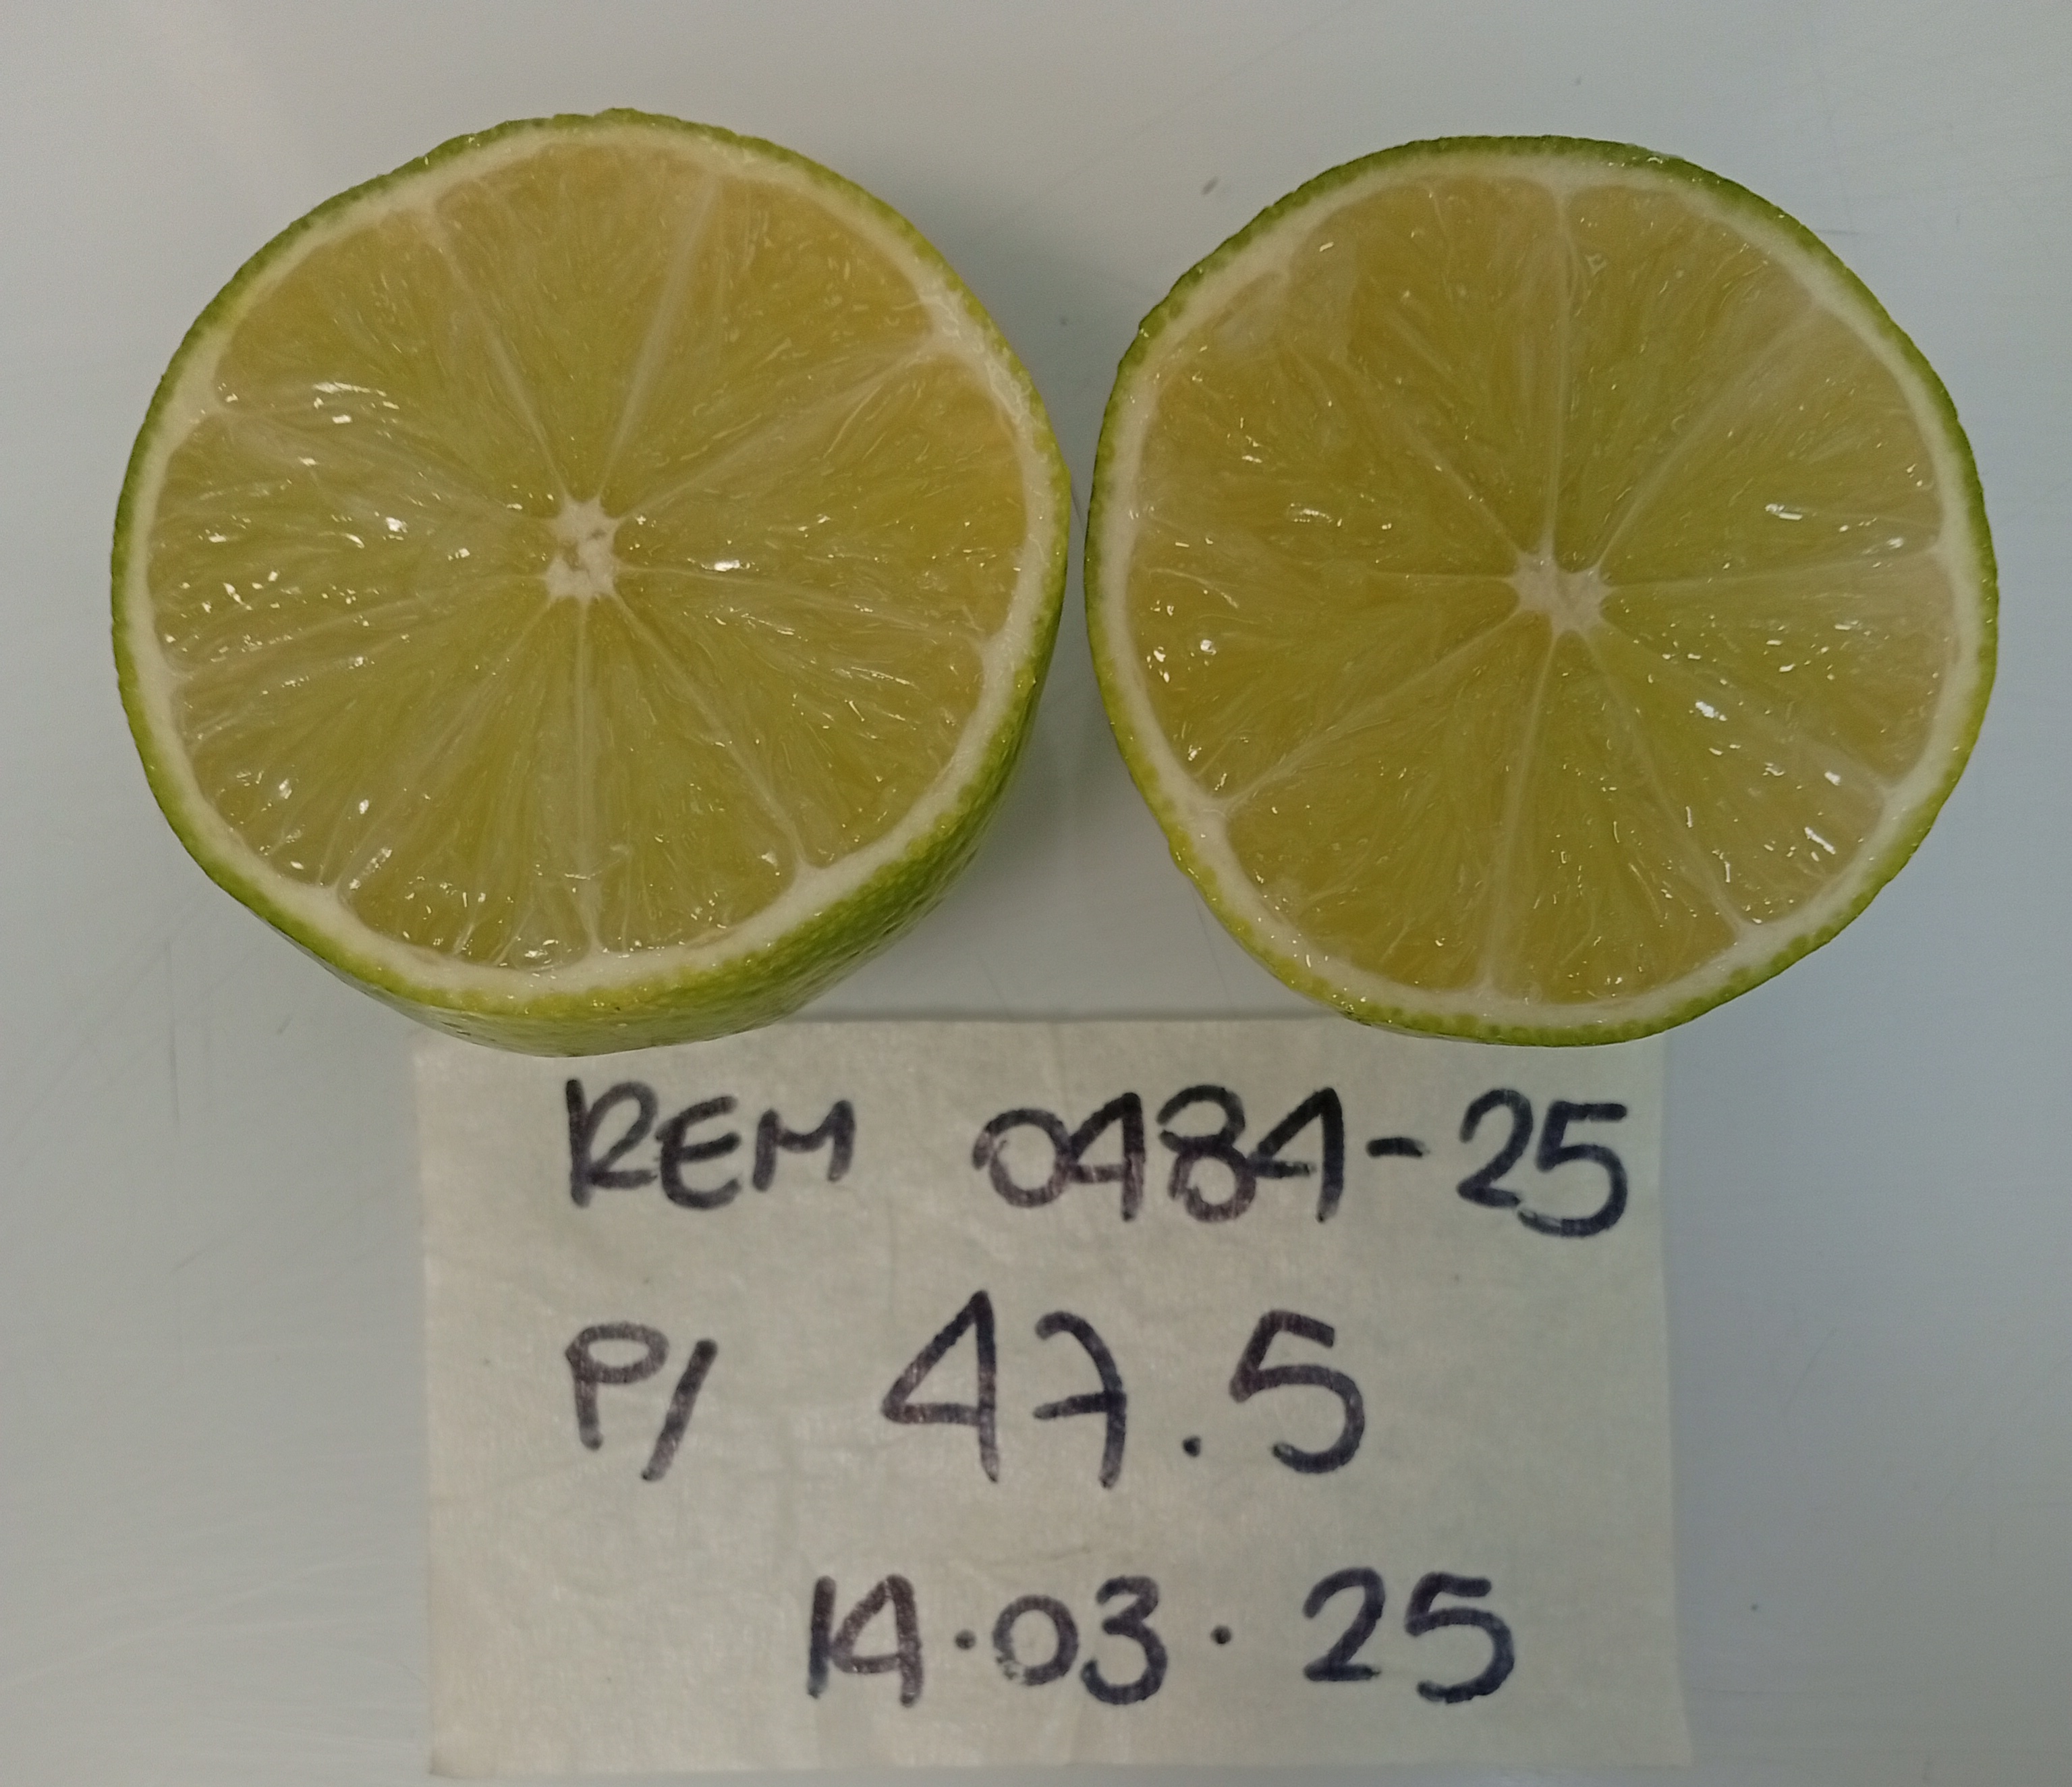 REM 0484-25
P/ 47.5
14.03.25